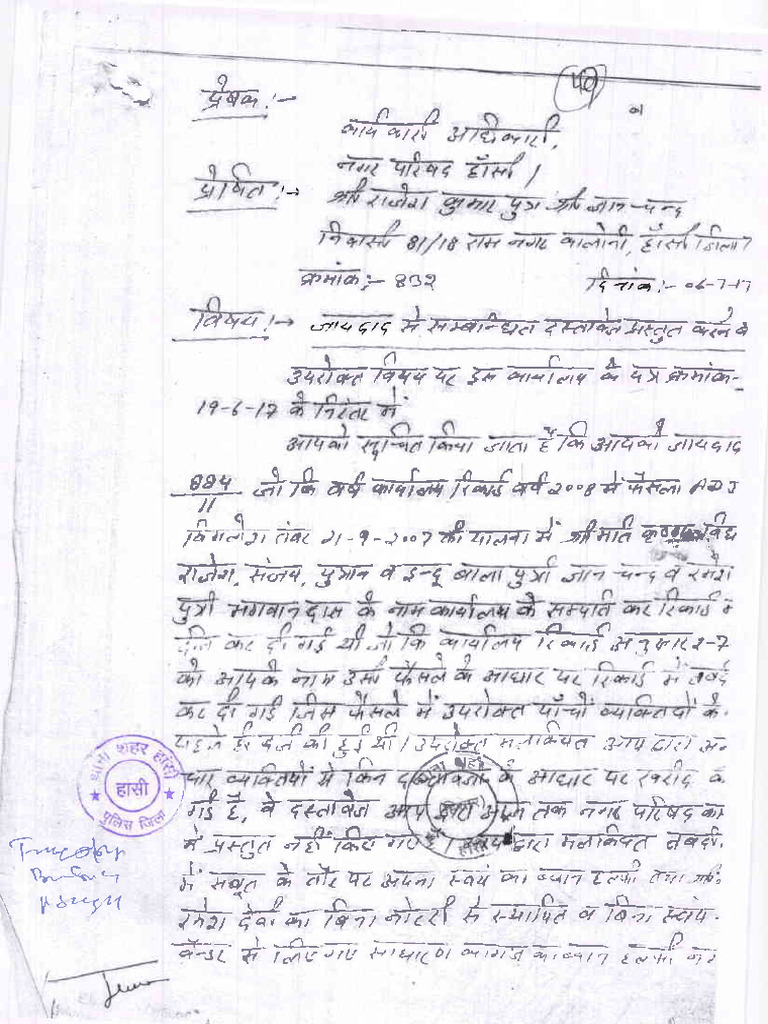 40
प्रेषक:-
कार्यकारी अधिकारी,
नगर परिषद हाँसी।
प्रेषित:-
श्री राजेश कुमार पुत्र श्री ज्ञान चन्द
निवासी 81/18 राम नगर कालोनी, हाँसी जिला
क्रमांक:- 832 दिनांक:- 06-7-17
विषय:- जायदाद से सम्बन्धित दस्तावेज प्रस्तुत करने बे
उपरोक्त विषय पर इस कार्यालय के पत्र क्रमांक-
19-6-17 के निरंतर में
आपको सूचित किया जाता है कि आपकी जायदाद
884/11 जो कि वर्ष कार्यालय रिकार्ड वर्ष 2008 में फैसला ADJ
तंवर 21-9-2007 की पालना में श्रीमति
राजेश, संजय, पुत्रान व इन्दू बाला पुत्री ज्ञान चन्द व रमेश
पुत्री भगवान दास के नाम कार्यालय के सम्पति कर रिकार्ड में
दर्ज कर दी गई थी जो कि कार्यालय रिकार्ड अनुसार 2-7
को आपके नाम उसी फैसले के आधार पर रिकार्ड में तबदे
कर दी गई जिस फैसले में उपरोक्त पाँचों व्यक्तियों के
पहले ही दर्ज की हुई थी। उपरोक्त मलकियत आप द्वारा अन
चार व्यक्तियों से किन दस्तावेजों के आधार पर खरीद की
गई है, वे दस्तावेज आप द्वारा आज तक नगर परिषद का
में प्रस्तुत नहीं किए गए। द्वारा मलकियत तबदी
में सबूत के तौर पर अपना स्वयं का ब्यान हल्फी तथा श्री
रमेश देवी का बिना नोटरी से स्थापित व बिना स्टांप
वैन्डर से लिए गए साधारण कागज का ब्यान हल्फी
थाना शहर हांसी
हांसी
पुलिस जिला